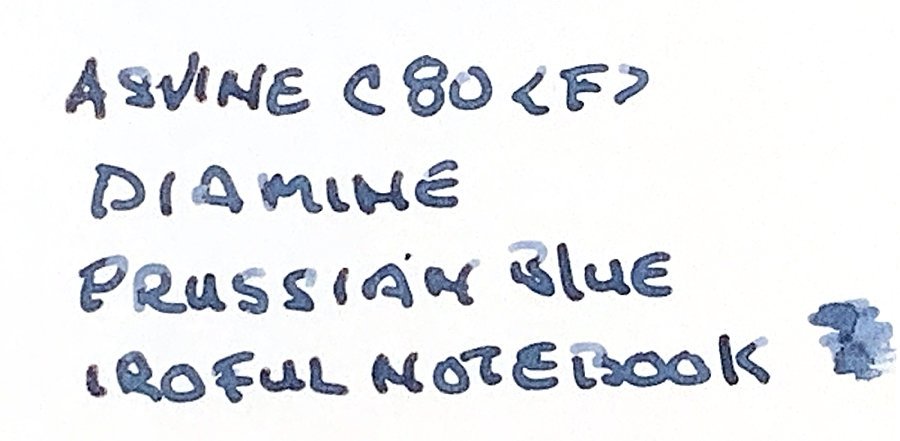 ASVINE C80 <F>
DIAMINE
PRUSSIAN BLUE
IROFUL NOTEBOOK